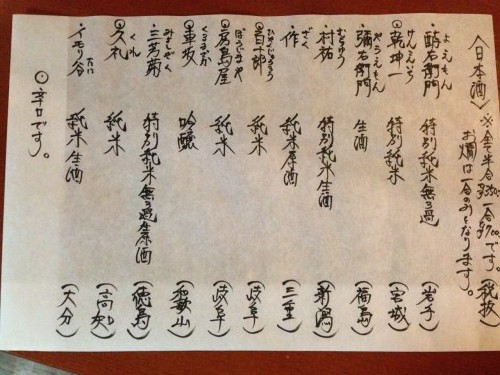 〈日本酒〉※全て半合350、一合700です(税抜)
お燗は一合のみとなります。
・酔右衛門 よえもん 特別純米無ろ過 (岩手)
⦿乾坤一 けんこんいち 特別純米 (宮城)
・彌右衛門 やうえもん 生酒 (福島)
・村祐 むらゆう 特別純米生酒 (新潟)
・作 ざく 純米原酒 (三重)
⦿百十郎 ひゃくじゅうろう 純米 (岐阜)
⦿房島屋 ぼうじまや 純米 (岐阜)
⦿車坂 くるまざか 吟醸 (和歌山)
・三芳菊 みよしきく 特別純米無ろ過生原酒 (徳島)
⦿久礼 くれ 純米 (高知)
・イモリ谷 だに 純米生酒 (大分)
⦿辛口です。